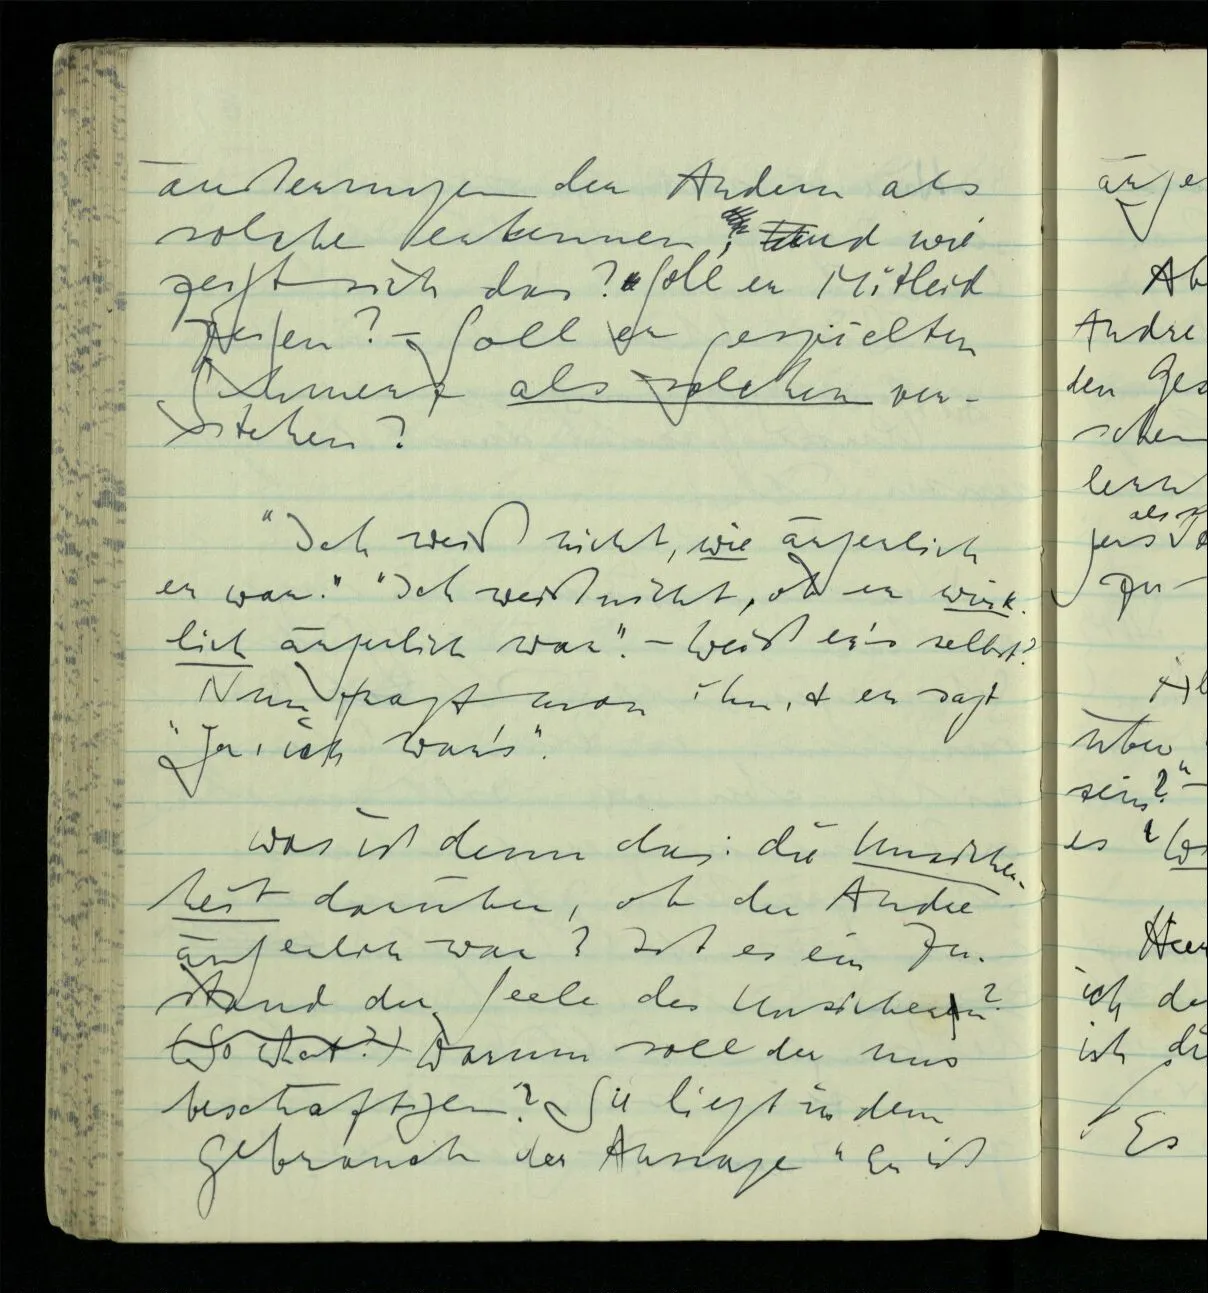 äusserungen der Andern als
solche erkennen; und wie
zeigt sich das? Soll er Mitleid
zeigen? – Soll er gespielten
Schmerz als solchen ver-
stehen?
"Ich weiß nicht, wie ärgerlich
er war." "Ich weiß nicht, ob er wirk-
lich ärgerlich war". – Weiß er's selbst?
Nun fragt man ihn, & er sagt
"Ja, ich war's".
Was ist denn das: die Unsicher-
heit darüber, ob der Andre
ärgerlich war? Ist es ein Zu-
stand der Seele des Unsichern?
(So what?) Warum soll der uns
beschäftigen? Sie liegt in dem
Gebrauch der Aussage "Er ist
ärge
Ab
Andre
den Ges
schen
lern
als
zu
über
sein?" –
es
ich de
ist di
Es